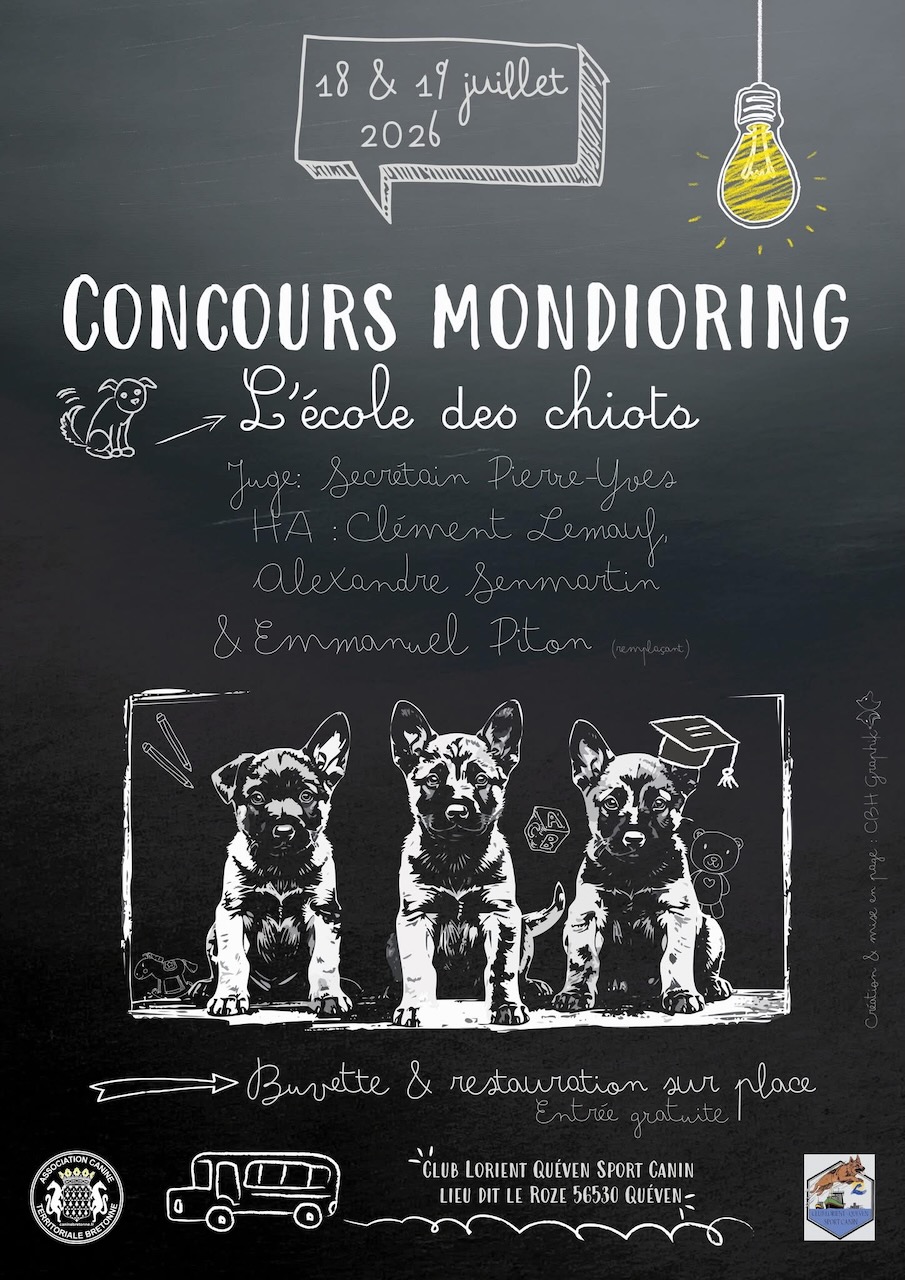 18 & 19 juillet
2026
CONCOURS MONDIORING
L'école des chiots
Juge: Secretain Pierre-Yves
HA : Clément Lemauf,
Alexandre Senmartin
& Emmanuel Piton (remplaçant)
A
B
C
Création & mise en page : CBH Graphik
Buvette & restauration sur place
Entrée gratuite
ASSOCIATION CANINE
TERRITORIALE BRETONNE
caninebretonne.fr
CLUB LORIENT QUÉVEN SPORT CANIN
LIEU DIT LE ROZE 56530 QUÉVEN
CLUB LORIENT - QUEVEN
SPORT CANIN